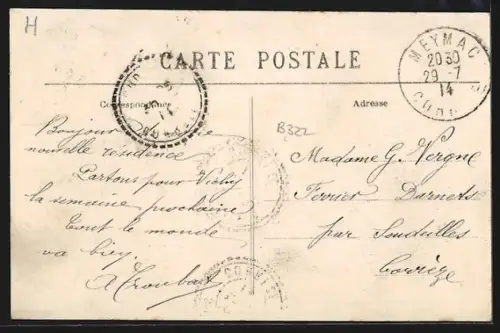 H
CARTE POSTALE
MEYMAC
20 30
29 -7
14
Correspondance
Adresse
B322
Bonjour
nouvelle résidence
Partons pour Vichy
la semaine prochaine
Tout le monde
va bien.
Madame G. Vergne
Ferrier Darnets
par Soudeilles
Corrèze